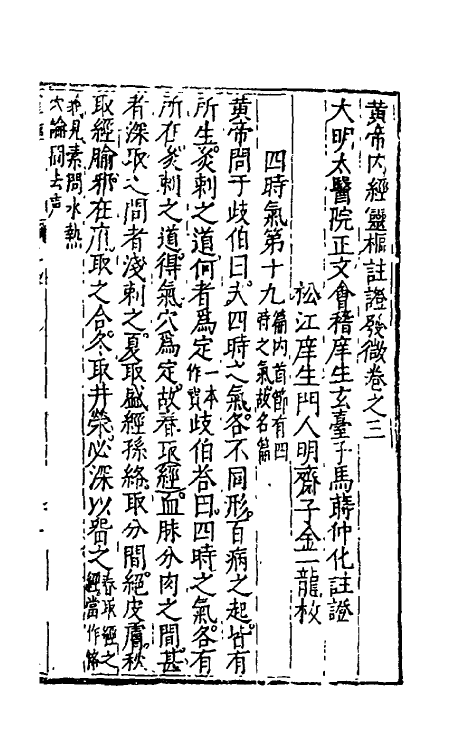 黄帝内經靈樞註證發微卷之三
大明太醫院正文會稽庠生玄臺子馬蒔仲化註證
松江庠生門人明齋子金一龍校
四時氣第十九篇内首節有四時之氣故名篇
黄帝問于歧伯曰夫四時之氣各不同形百病之起皆有
所生炙刺之道何者爲定一本作寳歧伯答曰四時之氣各有
所在炙刺之道得氣穴爲定故春取經血脉分肉之間甚
者深取之間者淺刺之夏取盛經孫絡取分間絕皮膚秋
取經腧邪在府取之合冬取井滎必深以留之春取經之經當作絡
亦見素問水熱穴論間去声